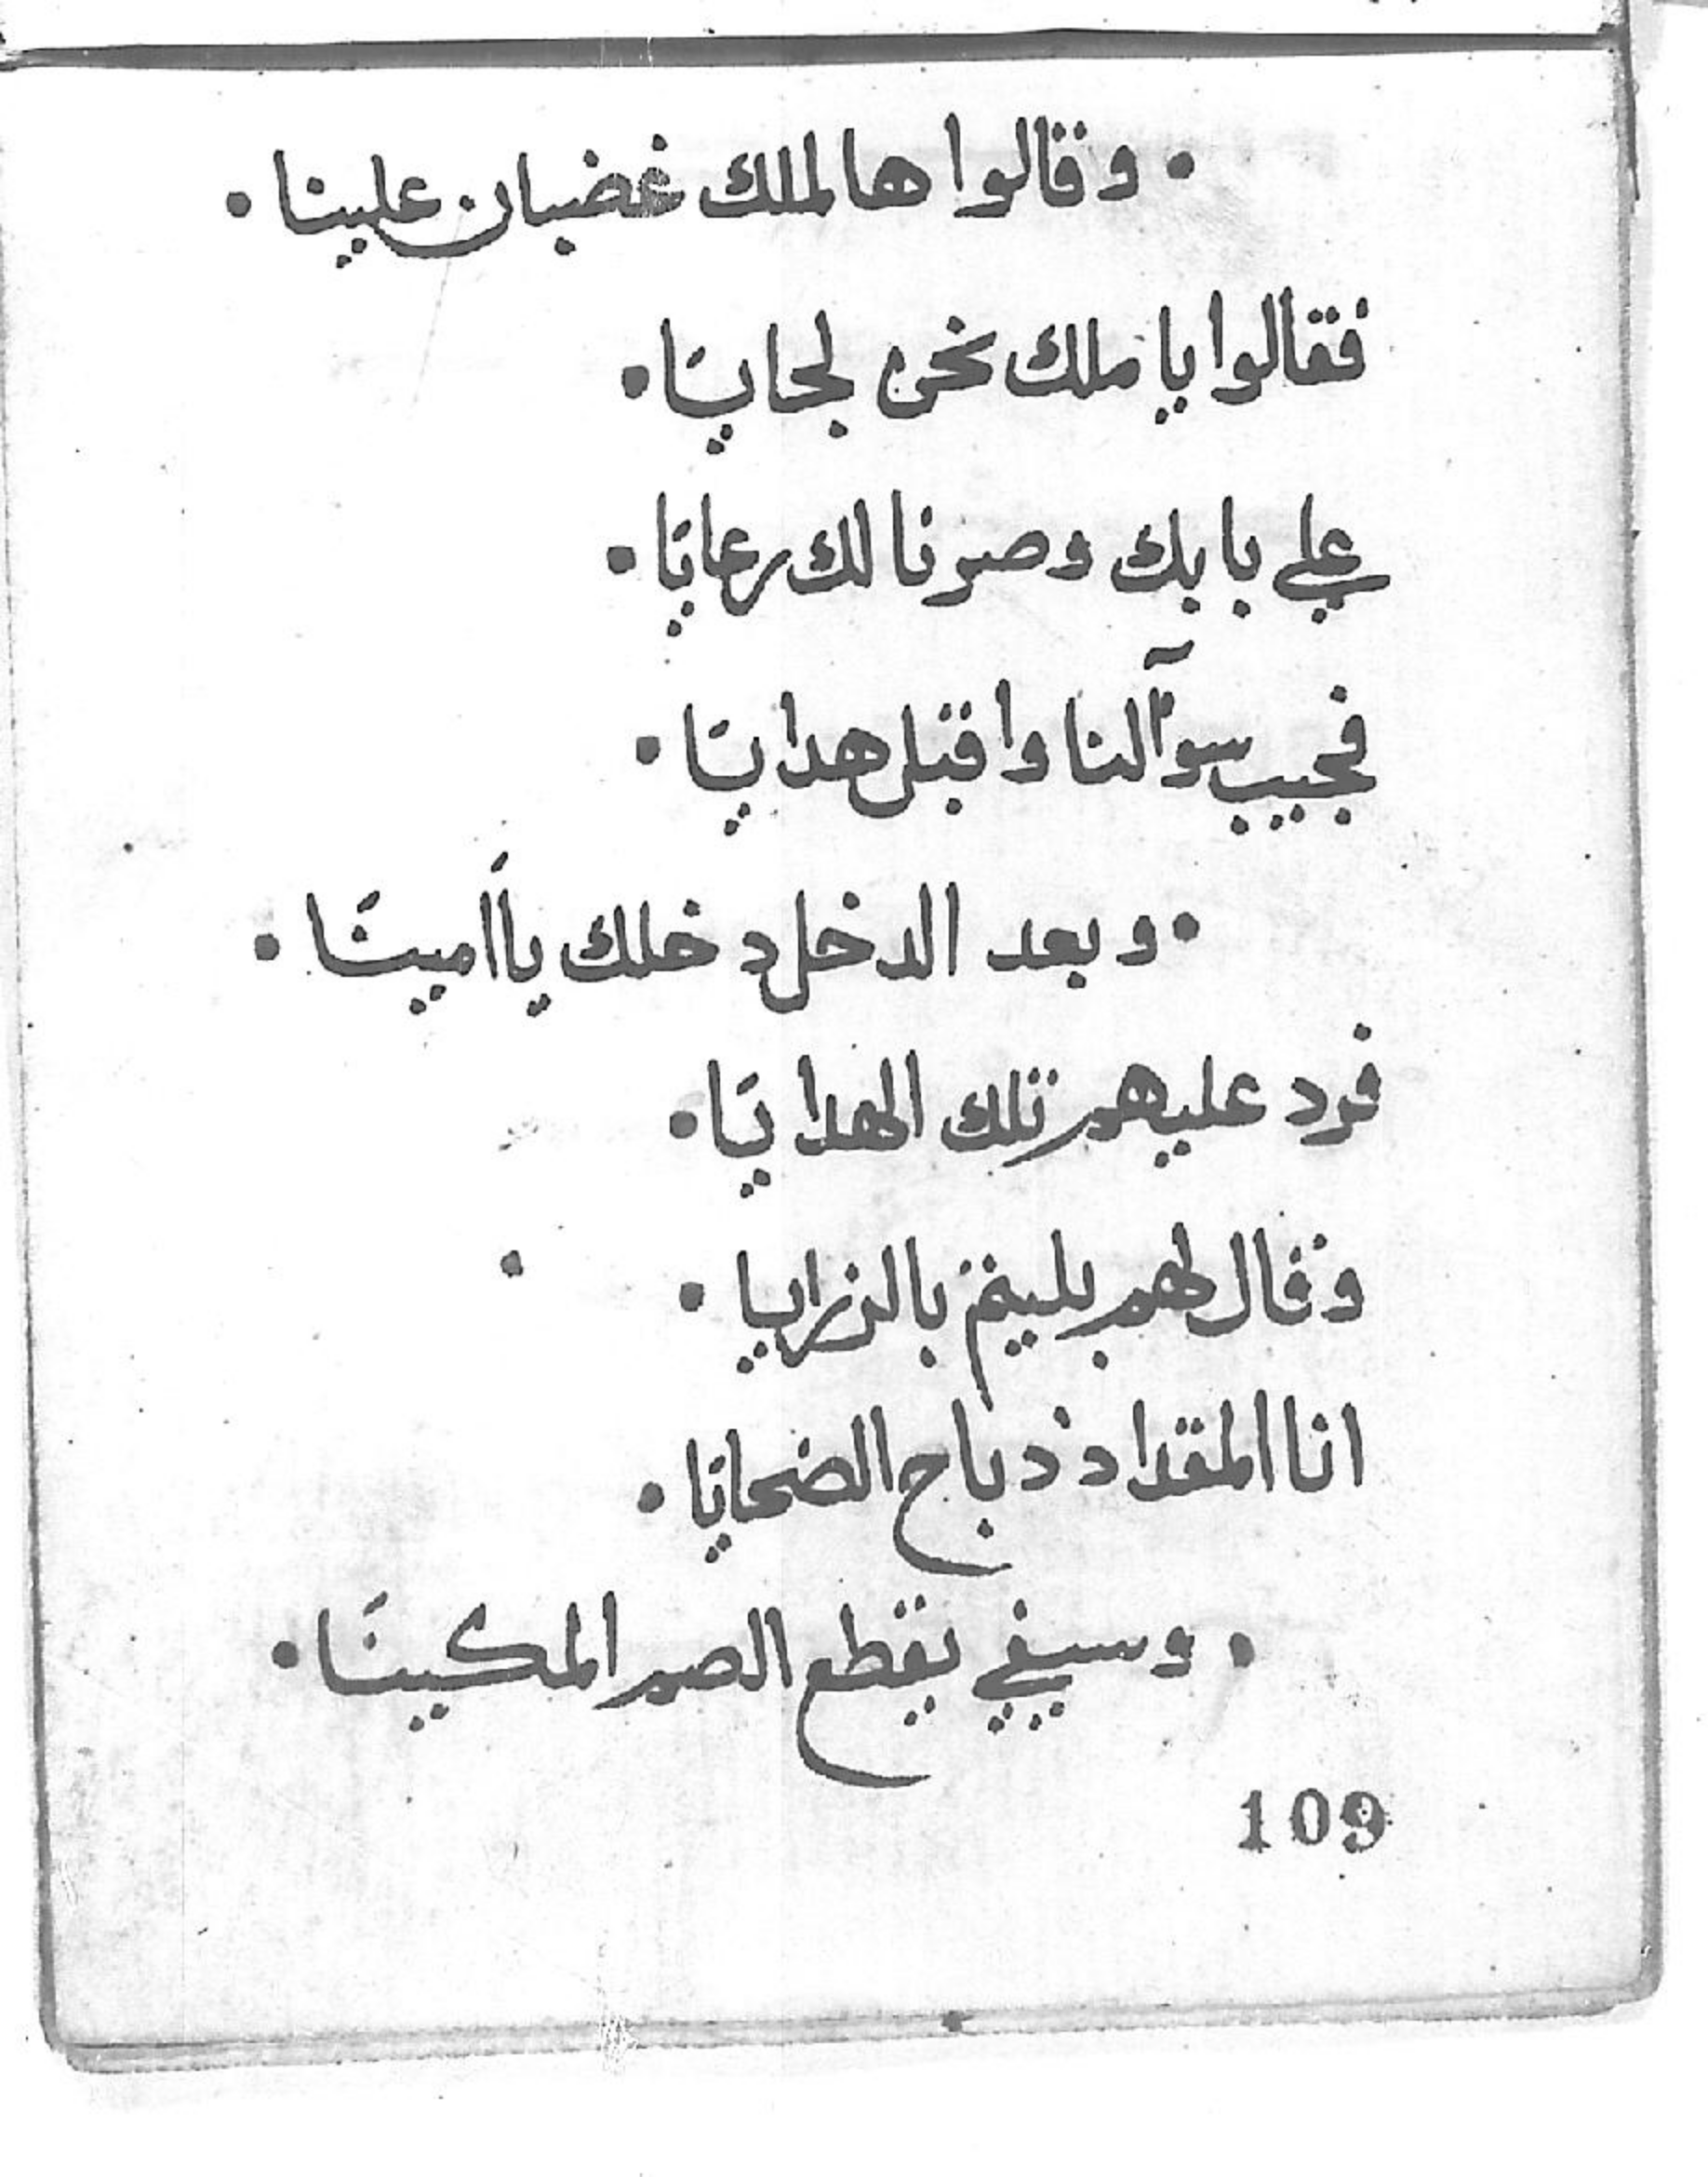 • وقالوا هالملك غضبان علينا •
فقالوا يا ملك نحن لجايَّا •
علي بابك وصرنا لك رعايَا •
فجيب سوآلنا واقبل هدايَّا •
• وبعد الدخل دخلك ياَامينَّا •
فرد عليهم تلك الهدايَا •
وقال لهم بليتم بالرزايا •
انا المقداد ذباح الضحايَا •
• وسيفي يقطع الصم المكينَا •
109